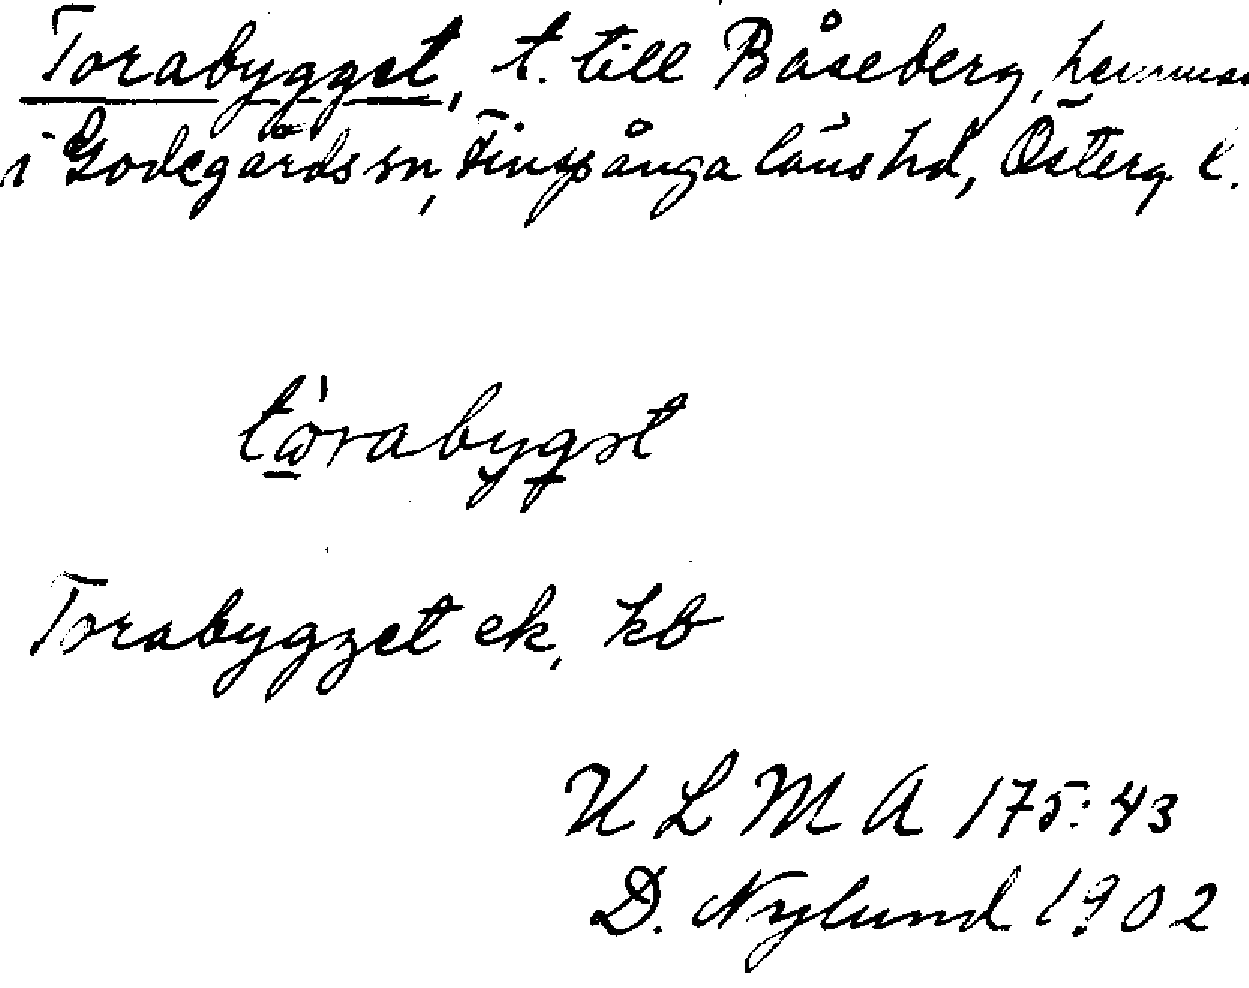 Torabygget, t. till Båseberg, hemman
i Godegårds sn, Finspånga läns hd, Österg. l.
tòrabygst
Torabygget ek, kb
ULMA 175:43
D. Nylund 1902